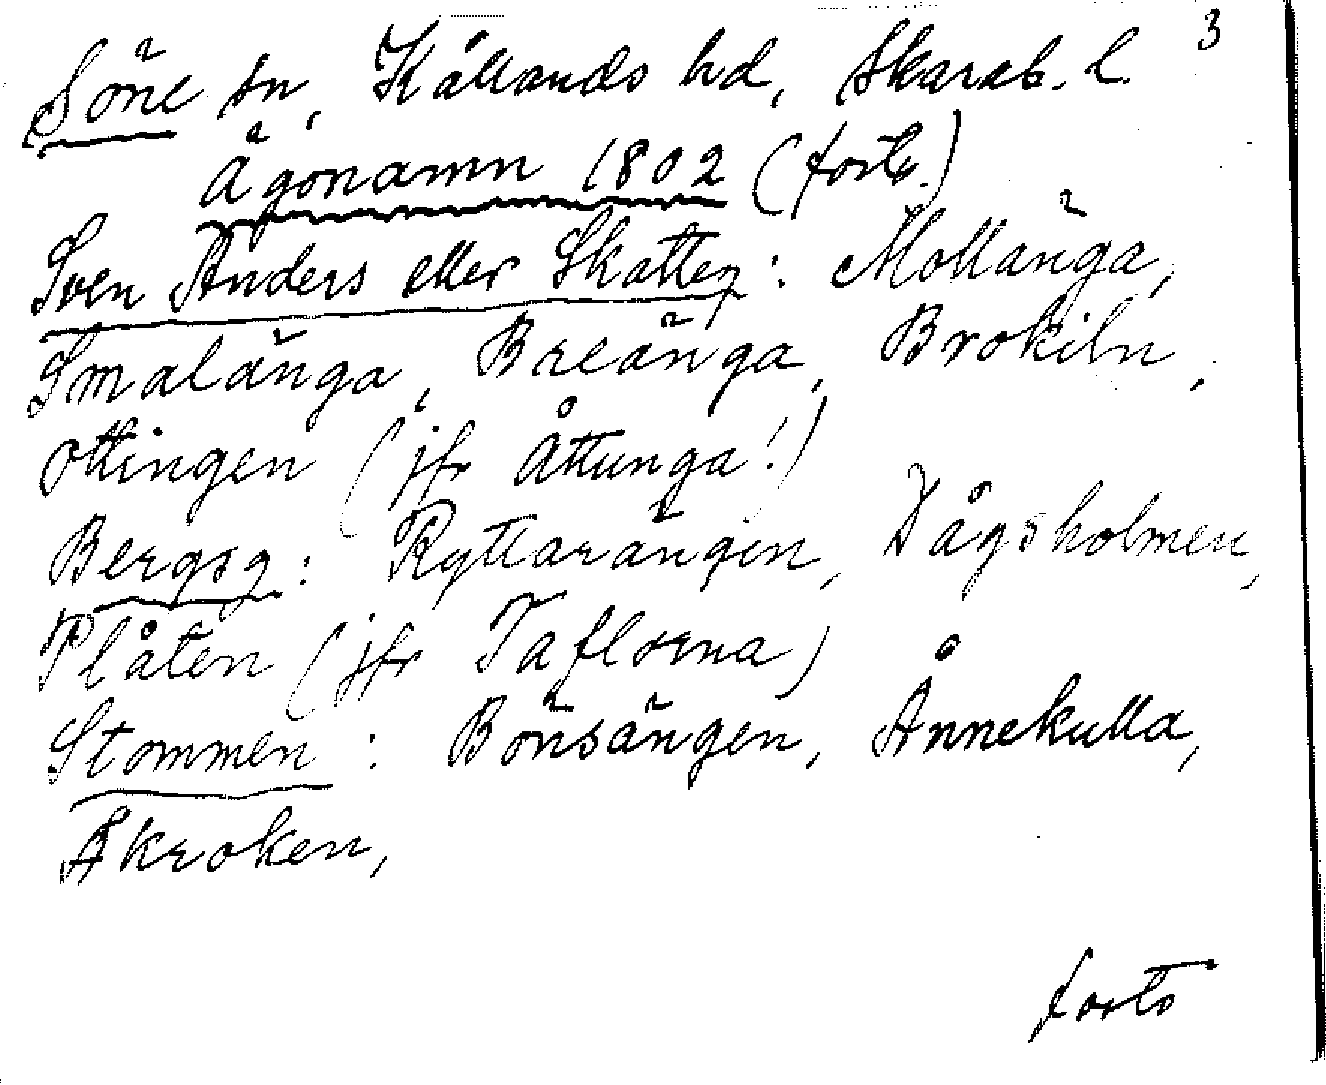 3
Söne sn, Kållands hd, Skarab. l.
Ägonamn 1802 (forts.)
Sven Anders eller Skatteg: Mollänga,
Smalänga, Breänga, Brokiln,
Ottingen (jfr Åttunga!)
Bergsg: Ryttarängen, Vågsholmen,
Plåten (jfr Taflorna)
Stommen: Bönsängen, Ånnekulla,
Åkroken,
forts